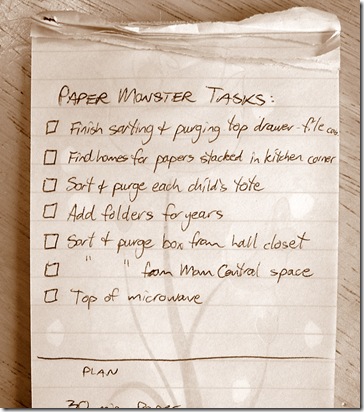 PAPER MONSTER TASKS:
Finish sorting & purging top drawer-file
Find homes for papers stacked in kitchen corner
Sort & purge each child's tote
Add folders for years
Sort & purge box from hall closet
" " from Mom Central space
Top of microwave
PLAN
30 min